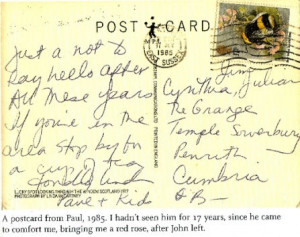 POST CARD
1985
EAST SUSSEX
Just a not to
say hello after
All these years
If you're in the
area stop by for
a cup of tea
fondly
Paul + Kids
Jim
Cynthia, Julian
The Grange
Temple Sowerby
Penrith
Cumbria
GB
A postcard from Paul, 1985. I hadn't seen him for 17 years, since he came
to comfort me, bringing me a red rose, after John left.